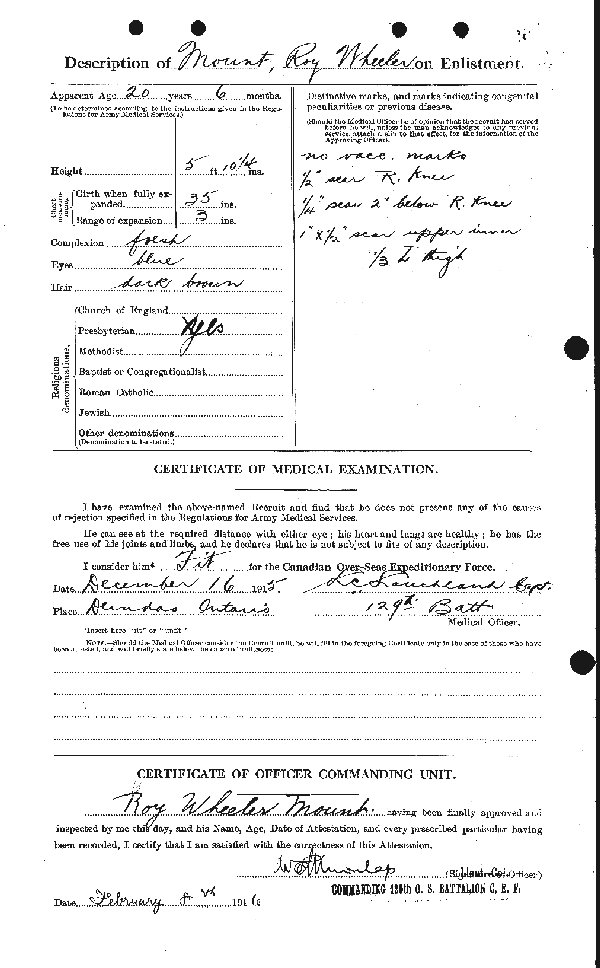 Description of Mount, Roy Wheeler on Enlistment.
Apparent Age 20 years 6 months.
(To be determined according to the instructions given in the Regulations for Army Medical Services.)
Height 5 ft. 10 1/4 ins.
Chest measurement
Girth when fully expanded 35 ins.
Range of expansion 3 ins.
Complexion fresh
Eyes blue
Hair dark brown
Religious denominations.
Church of England
Presbyterian Yes
Methodist
Baptist or Congregationalist
Roman Catholic
Jewish
Other denominations
(Denomination to be stated.)
Distinctive marks, and marks indicating congenital
peculiarities or previous disease.
(Should the Medical Officer be of opinion that the recruit has served
before, he will, unless the man acknowledges to any previous
service, attach a slip to that effect, for the information of the
Approving Officer).
no vacc. marks
1/2" scar R. Knee
1/4" scar 2" below R. Knee
1" x 1/2" scar upper inner
1/3 L thigh
CERTIFICATE OF MEDICAL EXAMINATION.
I have examined the above-named Recruit and find that he does not present any of the causes
of rejection specified in the Regulations for Army Medical Services.
He can see at the required distance with either eye; his heart and lungs are healthy; he has the
free use of his joints and limbs, and he declares that he is not subject to fits of any description.
I consider him* Fit for the Canadian Over-Seas Expeditionary Force.
Date December 16 1915 Capt.
Place Dundas Ontario 129th Batt
Medical Officer.
*Insert here "fit" or "unfit."
NOTE.—Should the Medical Officer consider the Recruit unfit, he will fill in the foregoing Certificate only in the case of those who have
CERTIFICATE OF OFFICER COMMANDING UNIT.
Roy Wheeler Mount having been finally approved and
inspected by me this day, and his Name, Age, Date of Attestation, and every prescribed particular having
been recorded, I certify that I am satisfied with the correctness of this Attestation.
(Signature of Officer)
COMMANDING 129th O. S. BATTALION C. E. F.
Date February 1916